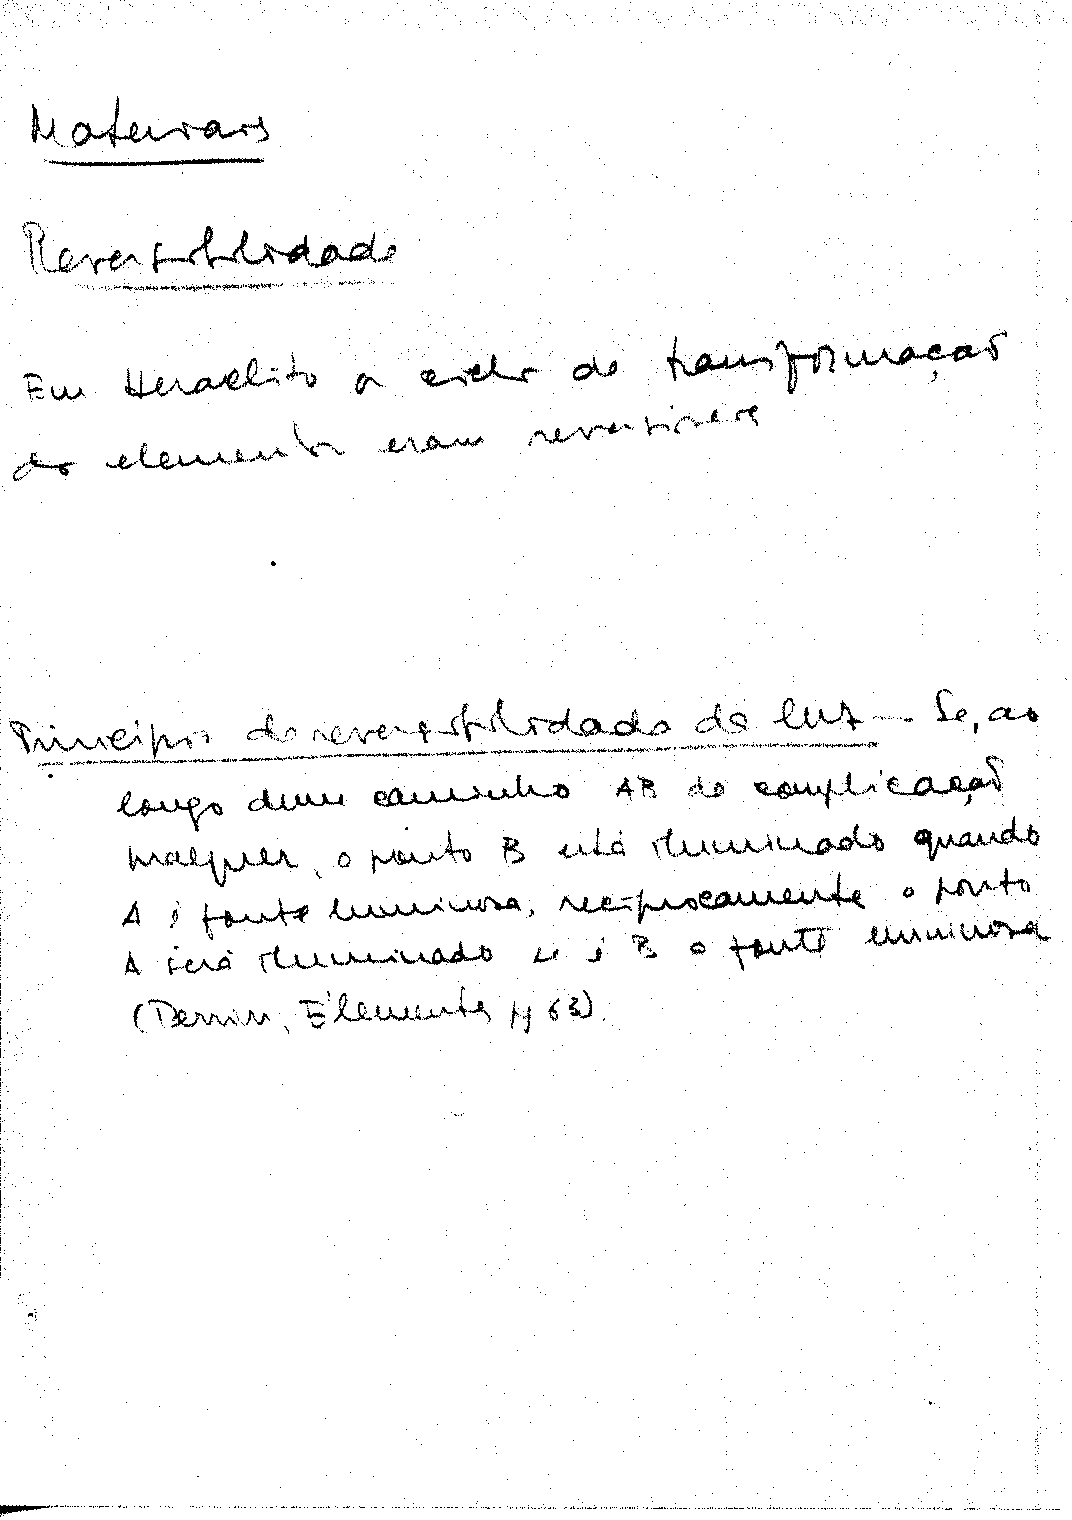 Materiais
Reversibilidade
Em Heraclito o ciclo de transformação
do elemento eram reversiveis
Principio da reversibilidade da luz — Se, ao
longo dum caminho AB de complicação
qualquer, o ponto B está iluminado quando
A é fonte luminosa, reciprocamente o ponto
A será iluminado se é B a fonte luminosa
(Perrin, Élements pg 63).